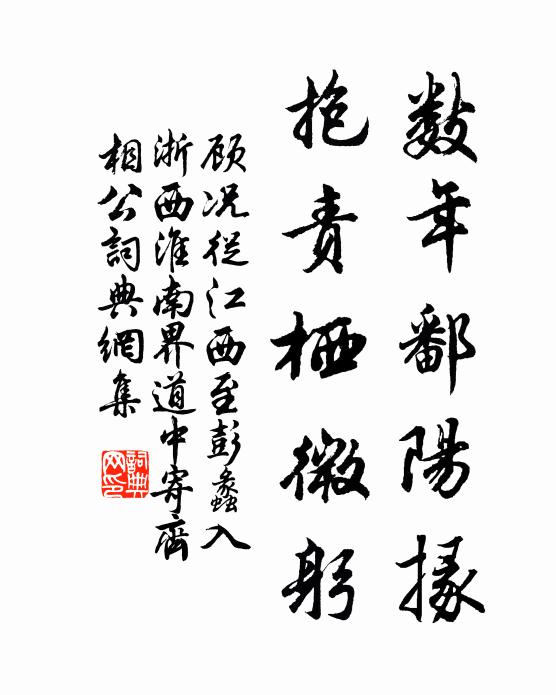 數年鄱陽掾
抱責栖微躬
顧况從江西至彭蠡入
浙西淮南界道中寄齊
相公詞典網集
詞典
网印